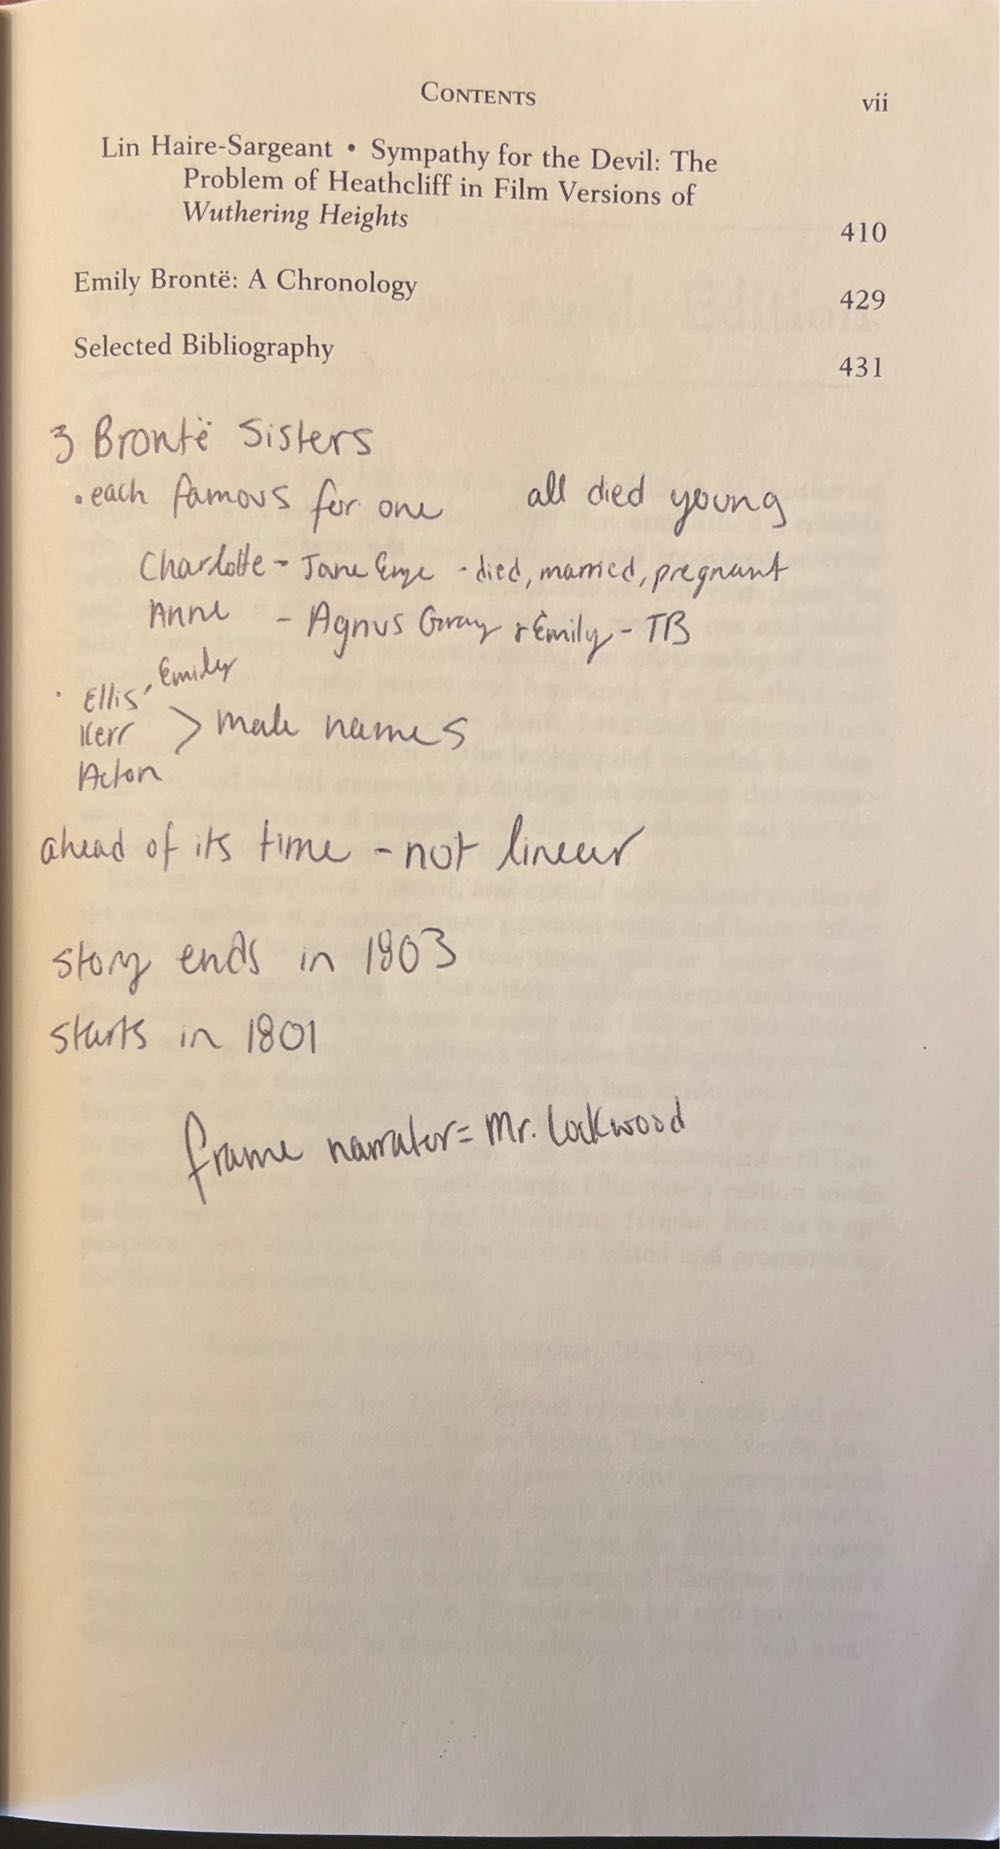 CONTENTS vii
Lin Haire-Sargeant • Sympathy for the Devil: The
Problem of Heathcliff in Film Versions of
Wuthering Heights 410
Emily Brontë: A Chronology 429
Selected Bibliography 431
3 Brontë Sisters
• each famous for one all died young
Charlotte - Jane Eyre - died, married, pregnant
Anne - Agnus Gray + Emily - TB
• Ellis, Emily
Kerr > male names
Acton
ahead of its time - not linear
story ends in 1803
starts in 1801
frame narrator = Mr. Lockwood